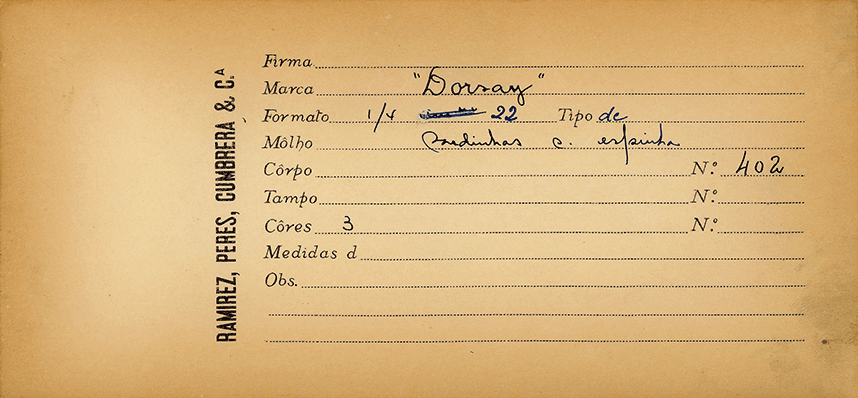 RAMIREZ, PERES, CUMBRERA & C.ª
Firma
Marca "Dorsay"
Formato 1/4 22 Tipo de
Môlho sardinhas c. espinha
Côrpo N.º 402
Tampo N.º
Côres 3 N.º
Medidas d
Obs.